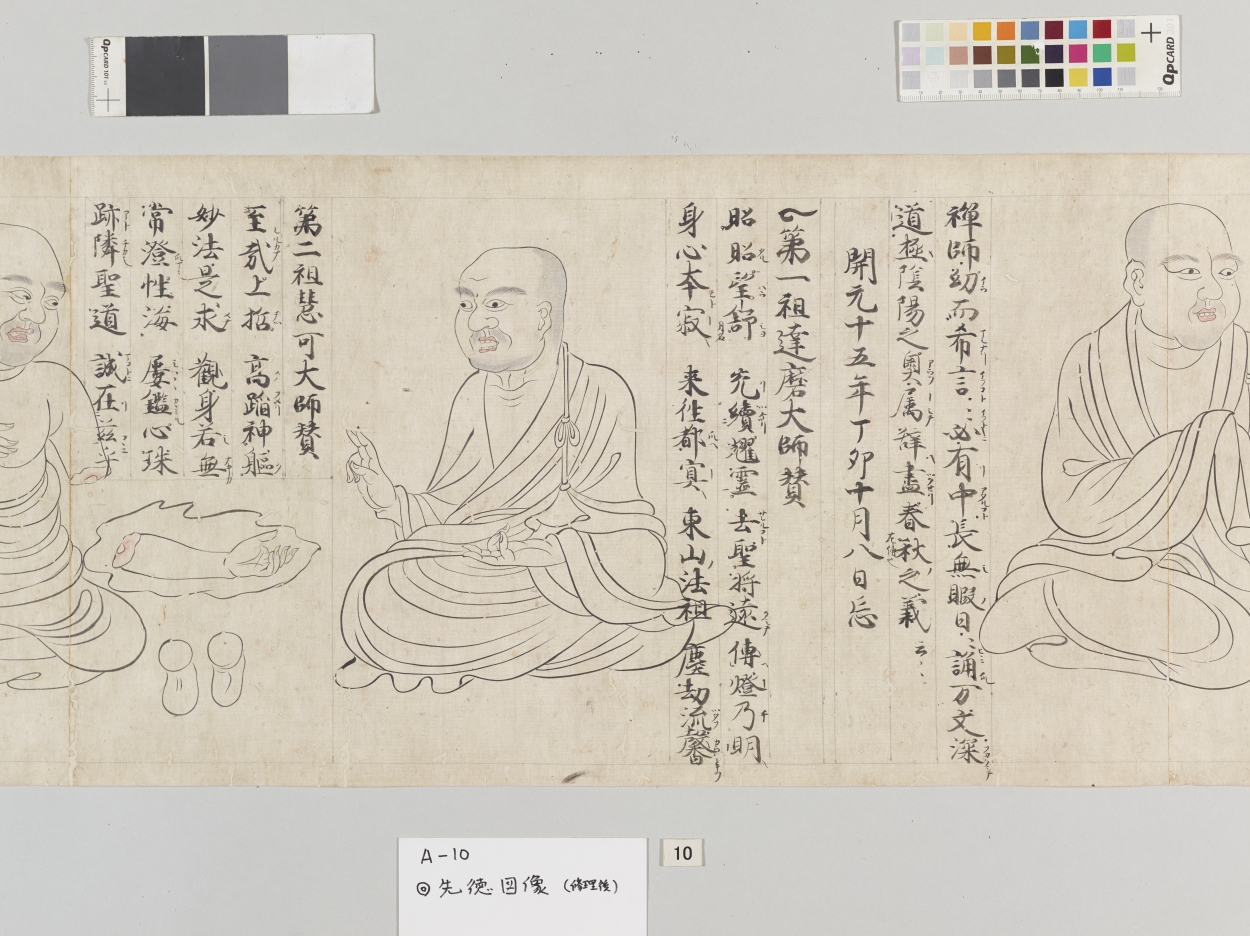 禪師幼而希言〻必有中長無暇日〻誦万文深
道極陰陽之奧属辞盡春秋之義云〻
開元十五年丁夘十月八日忌
第一祖達磨大師賛
昭昭望舒 充續耀霊 去聖将遠 傳燈乃明
身心本寂 来往都寘 東山法祖 塵劫流馨
第二祖慧可大師賛
至哉上括 高蹈神軀
妙法是求 觀身若無
常澄性海 屡鑑心珠
跡隣聖道 誠在兹乎
QPCARD 101
QPCARD 201
A-10
◎先徳図像(修理後)
10